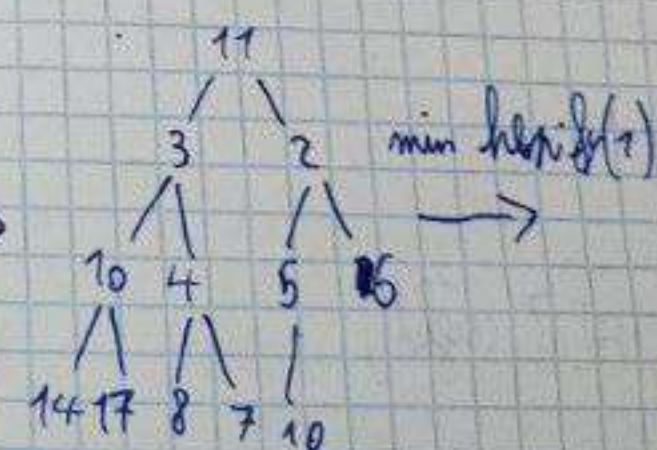 11
3 2 min heapify(1)
10 4 5 6
14 17 8 7 10